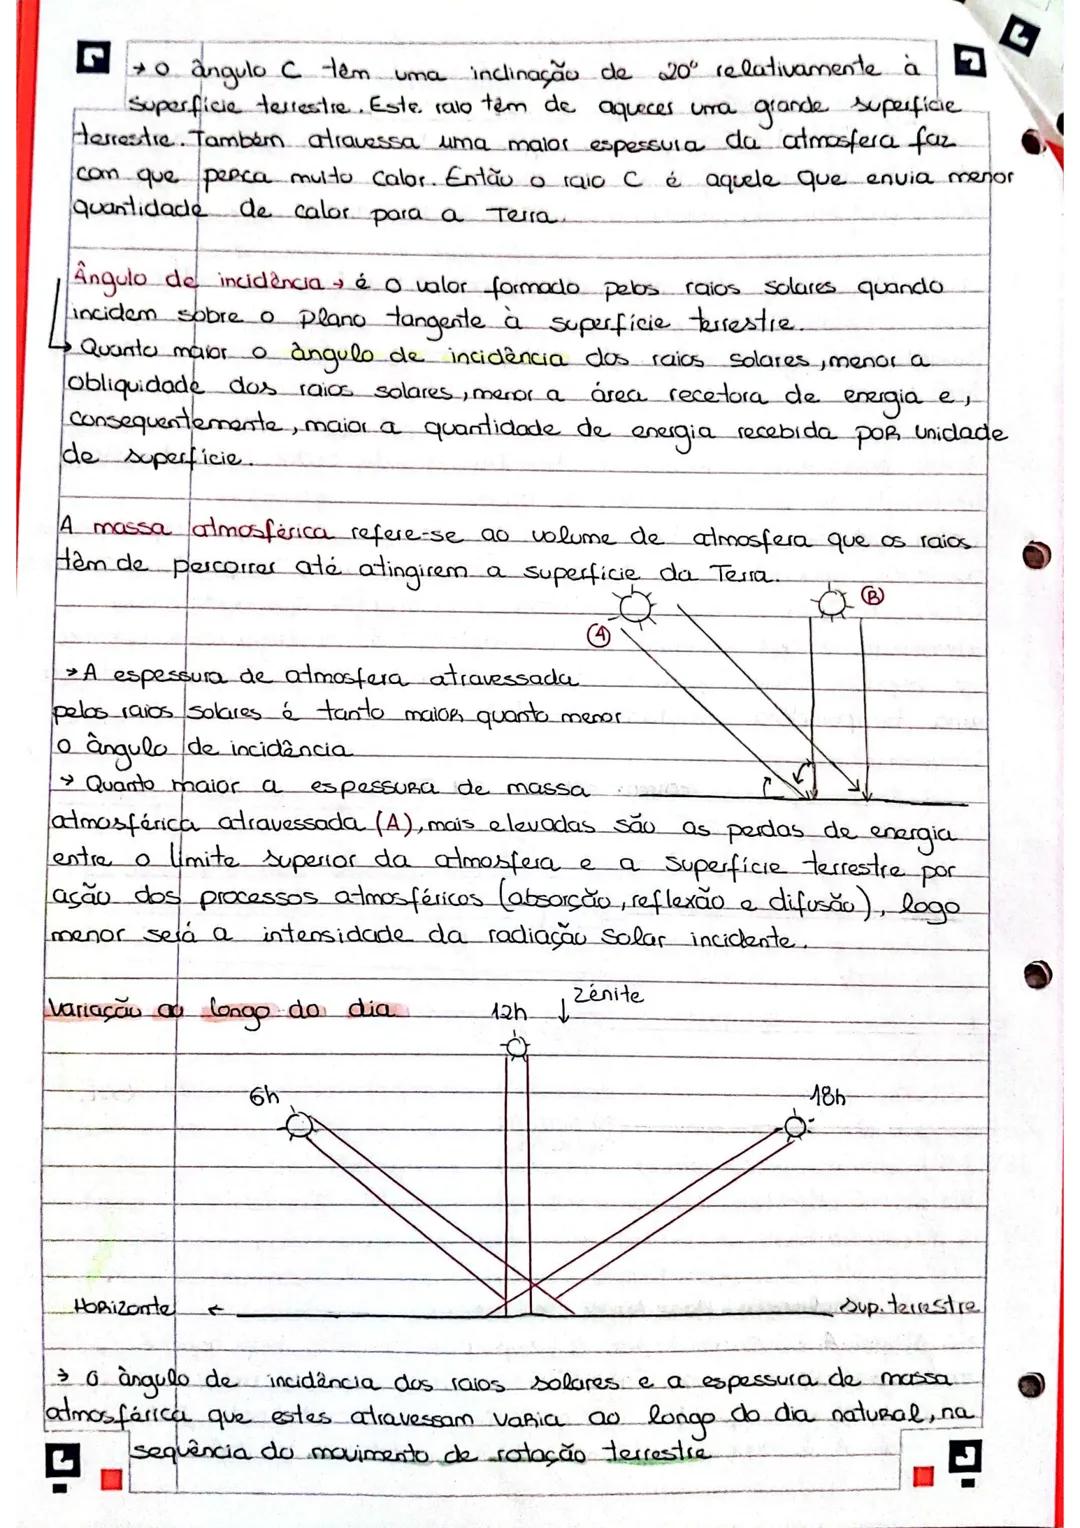 → o ângulo C têm uma inclinação de 20° relativamente à
superfície terrestre. Este raio têm de aquecer uma grande superfície
terrestre. Também atravessa uma maior espessura da atmosfera faz
com que perca muito calor. Então o raio C é aquele que envia menor
quantidade de calor para a Terra.
Ângulo de incidência → é o valor formado pelos raios solares quando
incidem sobre o plano tangente à superfície terrestre.
→ Quanto maior o ângulo de incidência dos raios solares, menor a
obliquidade dos raios solares, menor a área recetora de energia e,
consequentemente, maior a quantidade de energia recebida por unidade
de superfície.
A massa atmosférica refere-se ao volume de atmosfera que os raios
têm de percorrer até atingirem a superfície da Terra.
A B
→ A espessura de atmosfera atravessada
pelos raios solares é tanto maior quanto menor
o ângulo de incidência
→ Quanto maior a espessura de massa
atmosférica atravessada (A), mais elevadas são as perdas de energia
entre o limite superior da atmosfera e a superfície terrestre por
ação dos processos atmosféricos (absorção, reflexão e difusão), logo
menor será a intensidade da radiação solar incidente.
Variação ao longo do dia 12h ↓ Zénite
6h 18h
Horizonte ← sup. terrestre
→ O ângulo de incidência dos raios solares e a espessura de massa
atmosférica que estes atravessam varia ao longo do dia natural, na
sequência do movimento de rotação terrestre